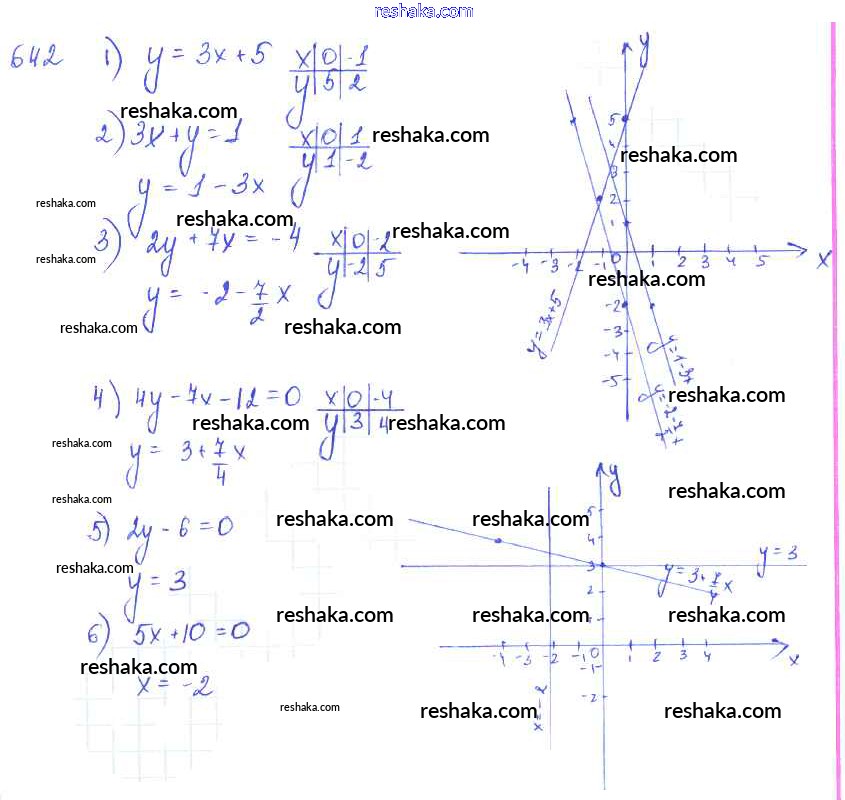 reshaka.com
642 1) y = 3x + 5
x | 0 | -1
y | 5 | 2
reshaka.com
2) 3x + y = 1
x | 0 | 1
y | 1 | -2
reshaka.com
reshaka.com
y = 1 - 3x
reshaka.com
reshaka.com
3) 2y + 7x = -4
x | 0 | -2
y | -2 | 5
reshaka.com
reshaka.com
y = -2 - 7/2 x
reshaka.com
reshaka.com
4) 4y - 7x - 12 = 0
x | 0 | -4
y | 3 | 4
reshaka.com
reshaka.com
reshaka.com
y = 3 + 7/4 x
reshaka.com
5) 2y - 6 = 0
reshaka.com
reshaka.com
y = 3
6) 5x + 10 = 0
reshaka.com
reshaka.com
x = -2
reshaka.com
y
5
reshaka.com
3
2
1
-4 -3 -2 -1 0 1 2 3 4 5 x
reshaka.com
-2
-3
-4
-5
y = 3x + 5
y = 1 - 3x
reshaka.com
y
reshaka.com
5
reshaka.com
4
3
y = 3
y = 3 + 7/4 x
2
reshaka.com
reshaka.com
-4 -3 -2 -1 0 1 2 3 4 x
-1
-2
x = -2
reshaka.com
reshaka.com